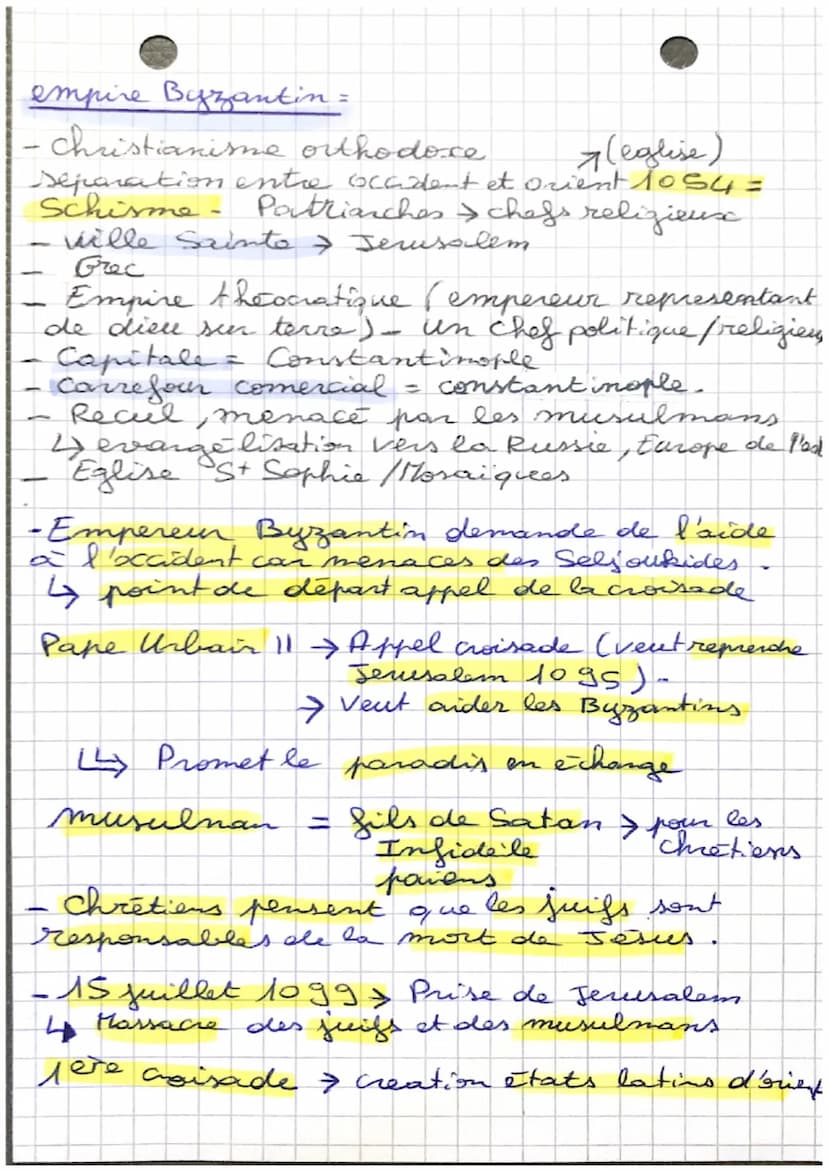 empire Byzantin =
- Christianisme orthodoxe ↗(eglise)
séparation entre occident et orient 1054 =
Schisme - Patriarches → chefs religieux
- Ville Sainte → Jerusalem
- Grec
- Empire théocratique (empereur representant
de dieu sur terre) - Un chef politique/religieux
- Capitale = Constantinople
- Carrefour comercial = constantinople.
- Recul, menacé par les musulmans
↳ evangélisation vers la Russie, Europe de l'est
- Eglise St Sophie / Mosaïques
- Empereur Byzantin demande de l'aide
à l'occident car menaces des Seljoukides.
↳ point de départ appel de la croisade
Pape Urbain II → Appel croisade (veut reprendre
Jerusalem 1095) -
→ veut aider les Byzantins
↳ Promet le paradis en échange
musulman = fils de Satan → pour les
Infidèle chrétiens
païens
- Chrétiens pensent que les juifs sont
responsables de la mort de Jésus.
- 15 juillet 1099 → Prise de Jerusalem
↳ Massacre des juifs et des musulmans
1ère croisade → creation états latins d'orient